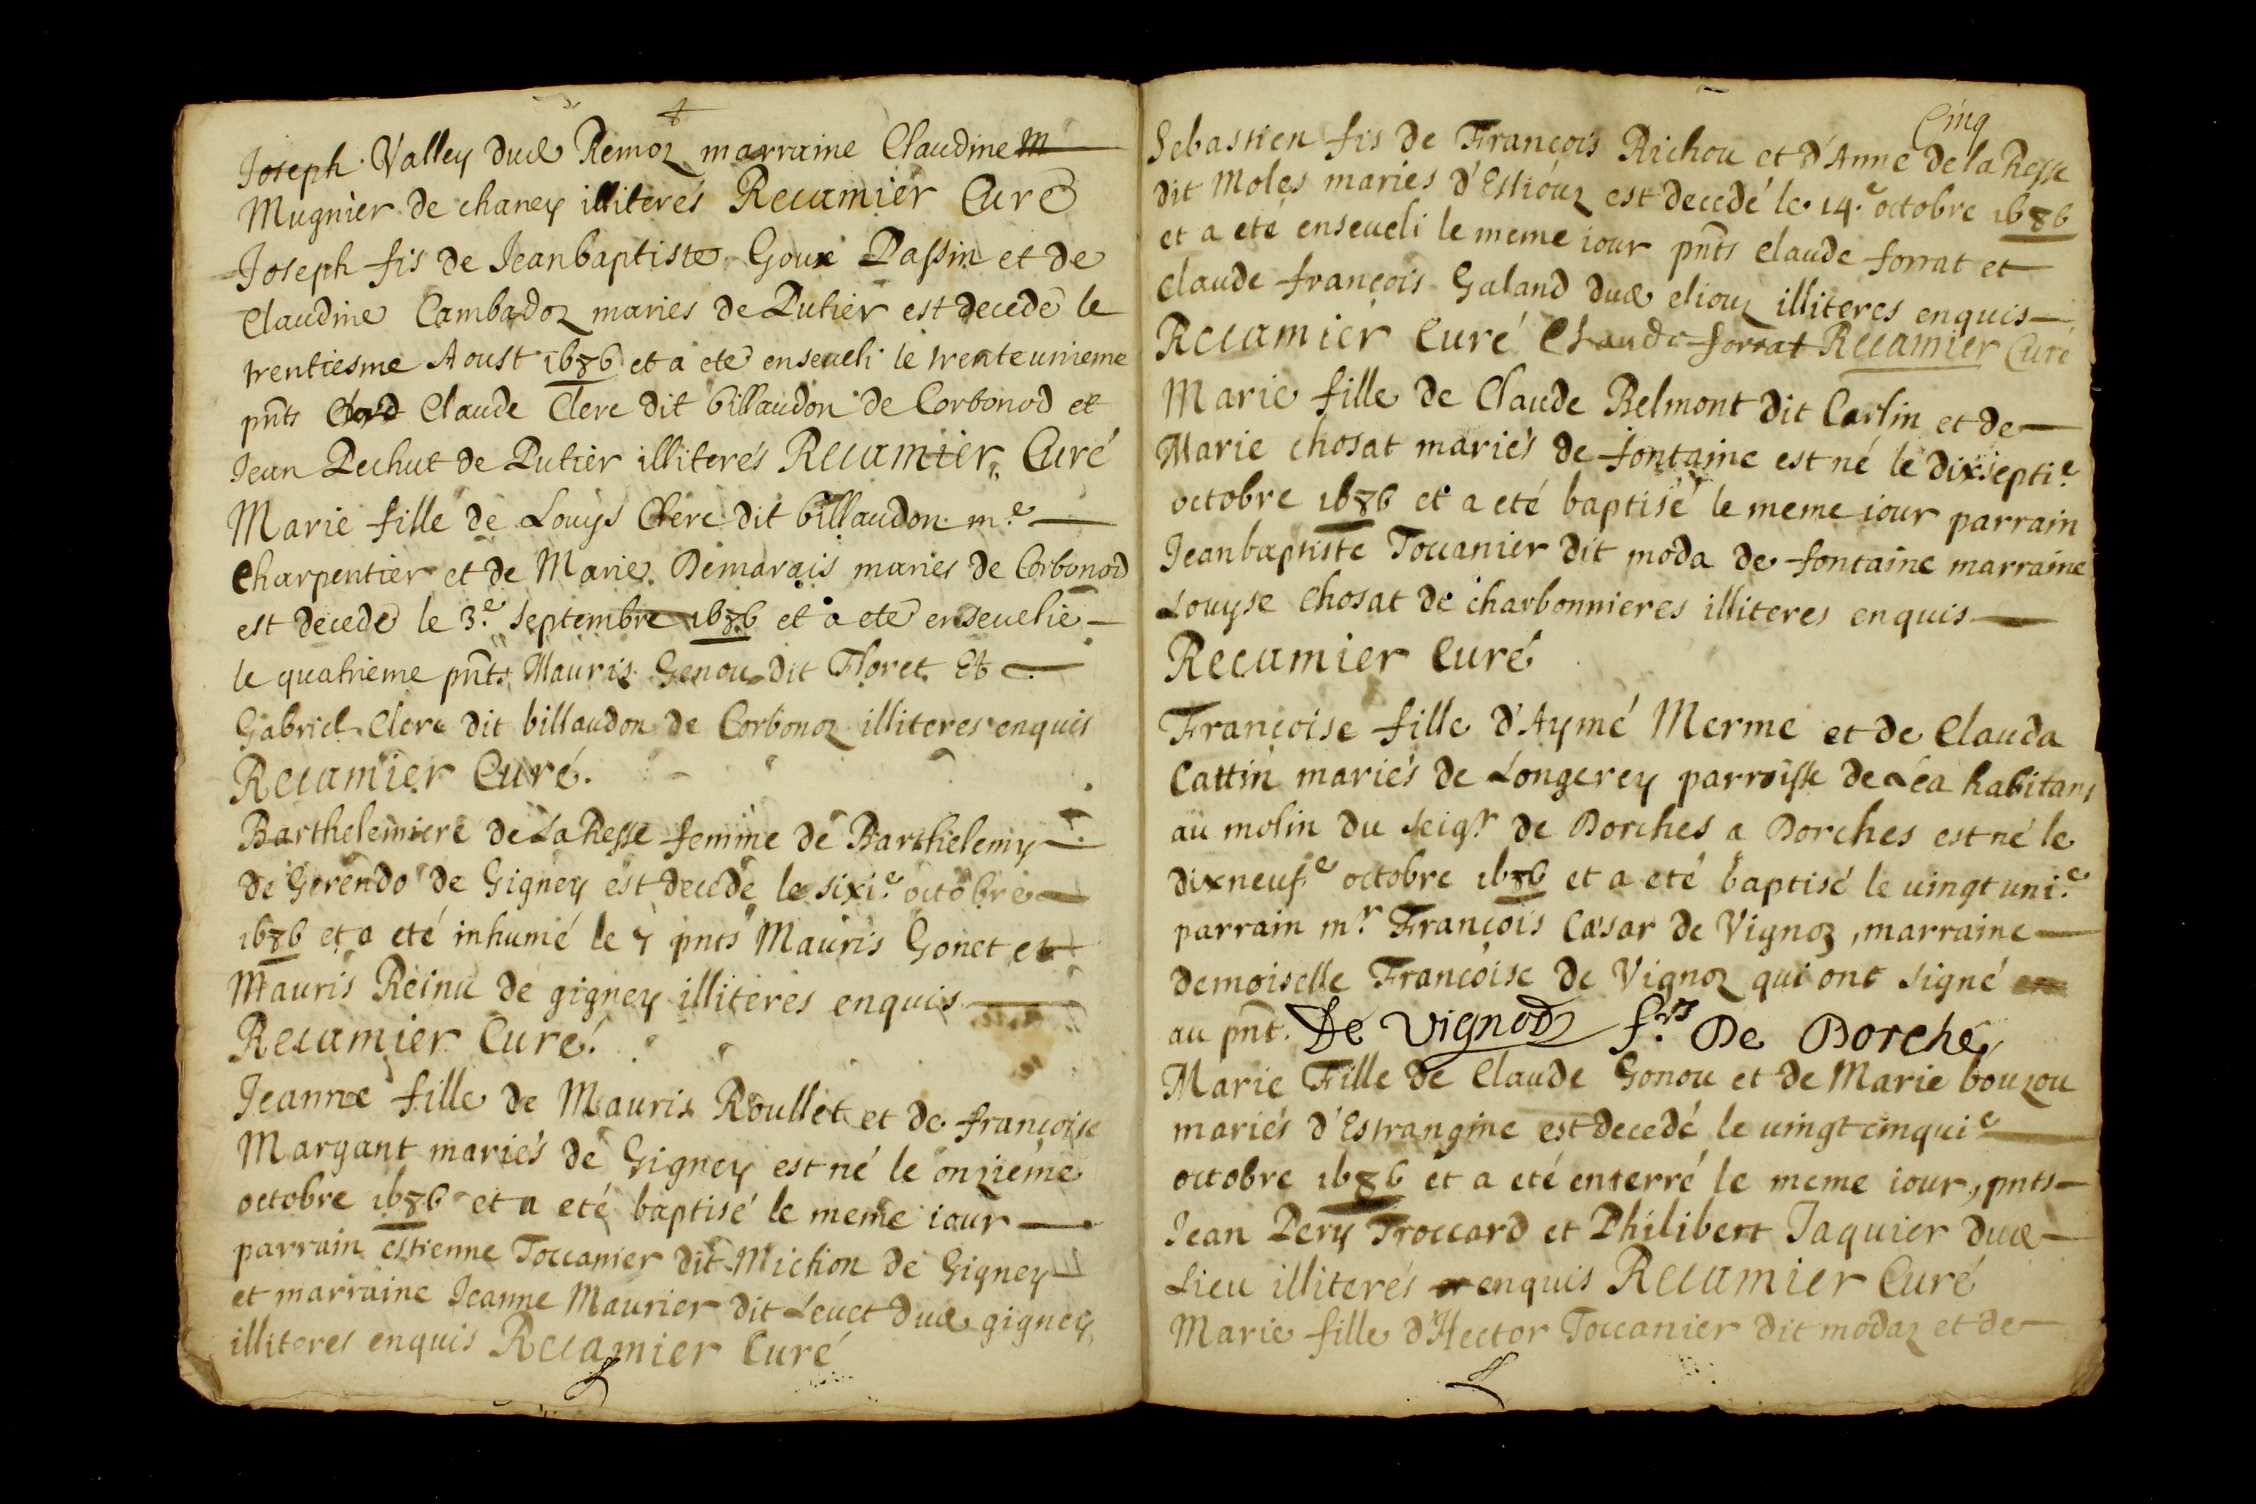 Joseph Valley dud Remoz marraine Claudine M
Mugnier de chaney illiterés Recamier Curé
Joseph fis de Jeanbaptiste Goux Passin et de
Claudine Cambadoz maries de Putier est decedé le
trentiesme Aoust 1686 et a eté enseueli le trenteunieme
pnts Claude Clerc dit billaudon de Corbonod et
Jean Pechut de Putier illiterés Recamier Curé
Marie fille de Louys Clerc dit billaudon m.e
Charpentier et de Marie Demarais maries de Corbonod
est decedé le 3.e septembre 1686 et a eté enseuelie
le quatrieme pnts Mauris Genou dit Floret Et
Gabriel Clerc dit billaudon de Corbonoz illiteres enquis
Recamier Curé.
Barthelemiere de La Resse femme de Barthelemy
de Gerendo de Gigney est decedé le sixi.e octobre
1686 et a eté inhumé le 7 pnts Mauris Gonet et
Mauris Reinu de gigney illiteres enquis
Recamier Curé.
Jeanne fille de Mauris Roullet et de françoise
Margant mariés de Gigney est né le onzieme
octobre 1686 et a eté baptisé le meme iour
parrain estienne Toccanier dit Michon de Gigney
et marraine Jeanne Maurier dit Leuet dud gigney
illiteres enquis Recamier Curé
Cinq
Sebastien fis de François Richou et d'Anne de la Resse
dit Moles mariés d'Estiouz est decedé le 14.e octobre 1686
et a eté enseueli le meme iour pnts claude forrat et
claude françois Galand dud eliouz illiteres enquis
Recamier Curé Claude forrat Recamier Curé
Marie fille de Claude Belmont dit Carlin et de
Marie chosat mariés de fontaine est né le dixsepti.e
octobre 1686 et a eté baptisé le meme iour parrain
Jeanbaptiste Toccanier dit moda de fontaine marraine
Louyse chosat de charbonnieres illiteres enquis
Recamier Curé
Françoise fille d'Aymé Merme et de Clauda
Cattin mariés de Longerey parroisse de Léa habitans
au molin du seigr de Dorches a Dorches est né le
dixneuf.e octobre 1686 et a eté baptisé le uingt uni.e
parrain mr François Cæsar de Vignoz, marraine
demoiselle Françoise de Vignoz qui ont signé
au pnt. De Vignod f.s De Dorche
Marie Fille de Claude Gonou et de Marie bouzou
mariés d'Estrangine est decedé le uingt cinqui.e
octobre 1686 et a eté enterré le meme iour, pnts
Jean Pery Troccard et Philibert Jaquier dud
Lieu illiterés enquis Recamier Curé
Marie fille d'Hector Toccanier dit modaz et de